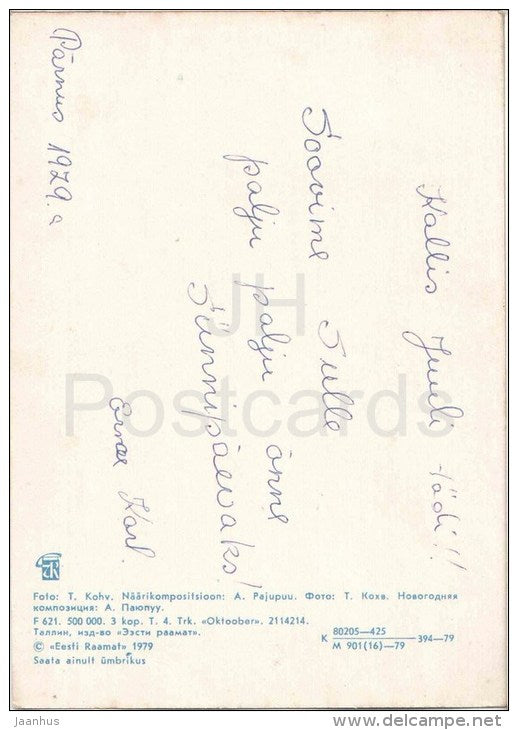 Kallis Juuli-tädi!!
Soovime Sulle
palju palju õnne
Sünnipäevaks!
Karl
Pärnus 1979.a
JH
Postcards
Foto: T. Kohv. Näärikompositsioon: A. Pajupuu. Фото: Т. Кохв. Новогодняя
композиция: А. Паюпуу.
F 621. 500 000. 3 kop. T. 4. Trk. «Oktoober». 2114214.
Таллин, изд-во «Ээсти раамат».
© «Eesti Raamat» 1979
Saata ainult ümbrikus
К 80205—425 394—79
М 901(16)—79
jaanhus
www.delcampe.net